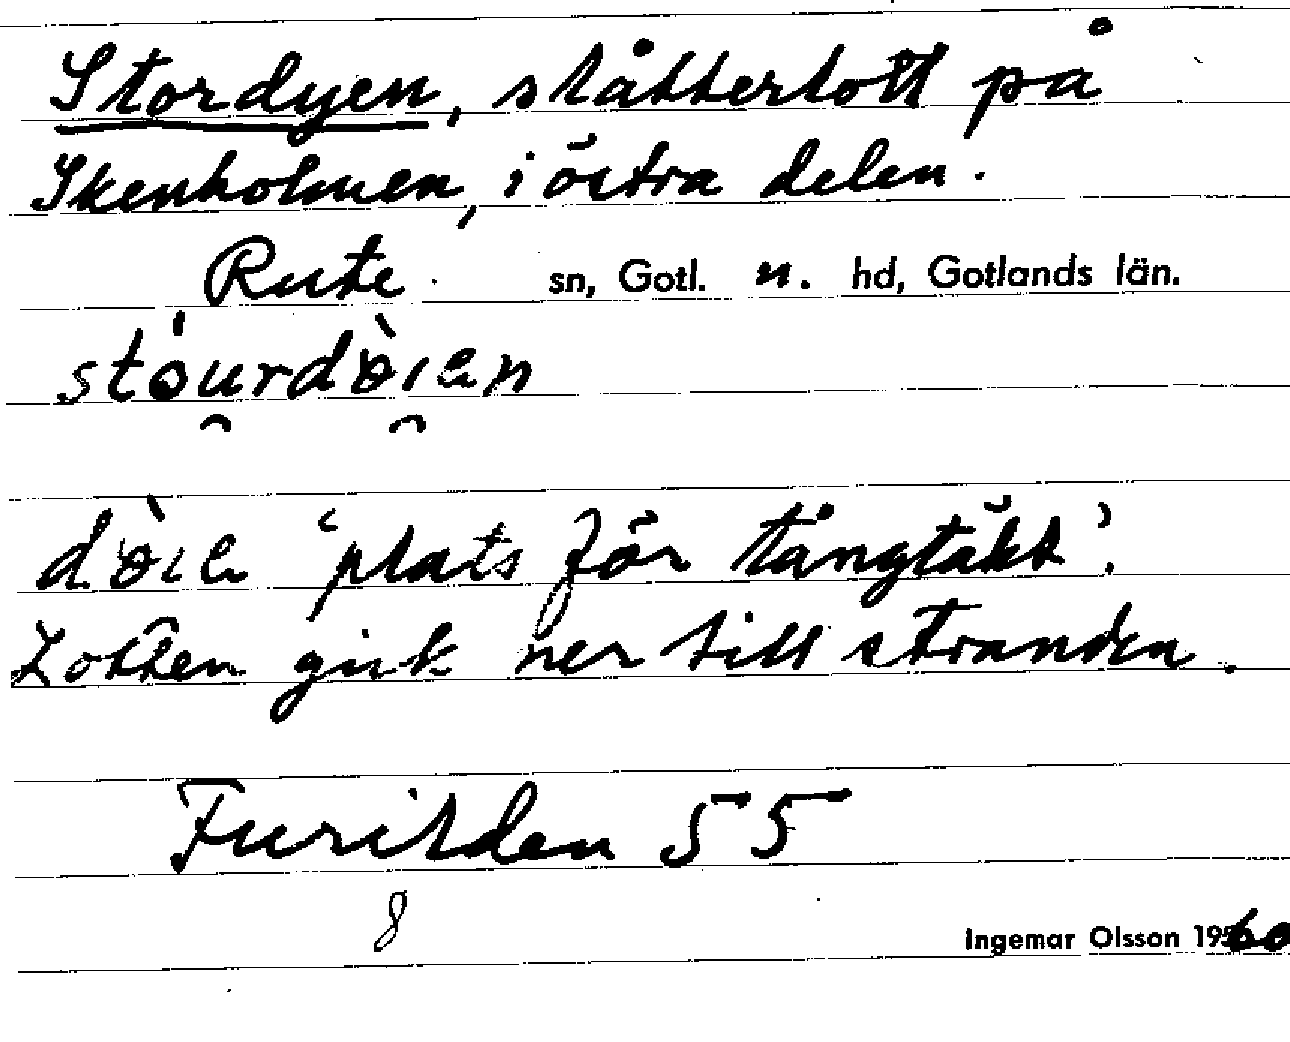 Stordyen, slåtterlott på
Skenholmen, i östra delen.
Rute sn, Gotl. n. hd, Gotlands län.
stóu̯rdὸi̯en
dὸie 'plats för tångtäkt'.
Lotten gick ner till stranden.
Furilden 55
8
Ingemar Olsson 1960